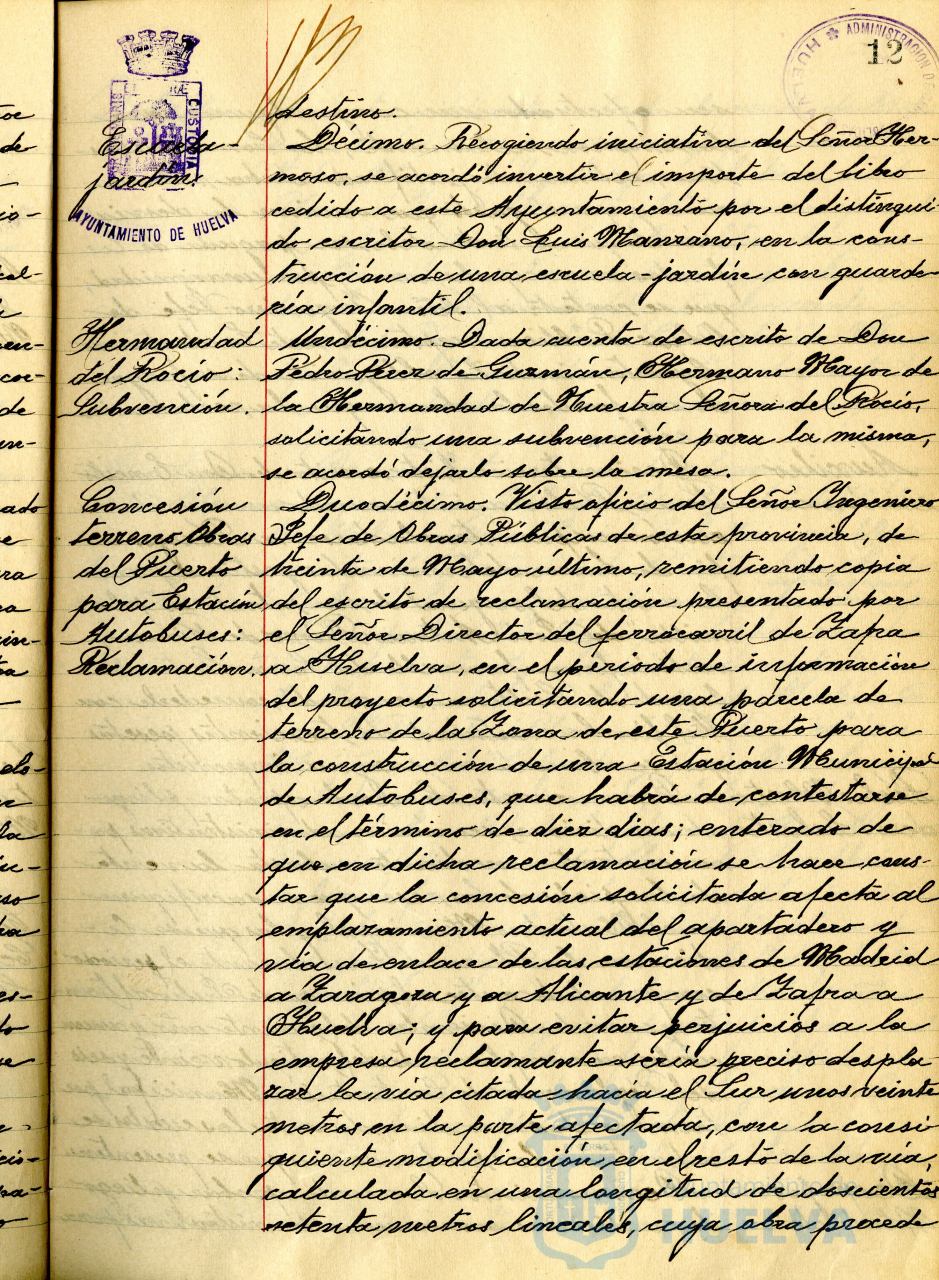 12
ADMINISTRACION DE
HUELVA
CUSTODIA
AYUNTAMIENTO DE HUELVA
destino.
Escuela-
jardín.
Décimo. Recogiendo iniciativa del Señor Her-
moso, se acordó invertir el importe del libro
cedido a este Ayuntamiento por el distingui-
do escritor Don Luis Manzano, en la cons-
trucción de una escuela-jardín con guarde-
ría infantil.
Hermandad
del Rocio:
Subvención.
Undécimo. Dada cuenta de escrito de Don
Pedro Pérez de Guzmán, Hermano Mayor de
la Hermandad de Nuestra Señora del Rocio,
solicitando una subvención para la misma,
se acordó dejarlo sobre la mesa.
Concesión
terreno Obras
del Puerto
para Estación
Autobuses:
Reclamación.
Duodécimo. Visto oficio del Señor Ingeniero
Jefe de Obras Públicas de esta provincia, de
treinta de Mayo último, remitiendo copia
del escrito de reclamación presentado por
el Señor Director del ferrocarril de Zafra
a Huelva, en el periodo de información
del proyecto solicitando una parcela de
terreno de la Zona de este Puerto para
la construcción de una Estación Municipal
de Autobuses, que habrá de contestarse
en el término de diez dias; enterado de
que en dicha reclamación se hace cons-
tar que la concesión solicitada afecta al
emplazamiento actual del apartadero y
vía de enlace de las estaciones de Madrid
a Zaragoza y a Alicante y de Zafra a
Huelva; y para evitar perjuicios a la
empresa reclamante sería preciso despla
zar la vía citada hacia el Sur unos veinte
metros en la parte afectada, con la consi
guiente modificación en el resto de la vía,
calculada en una longitud de doscientos
setenta metros lineales, cuya obra procede
Ayuntamiento de
HUELVA